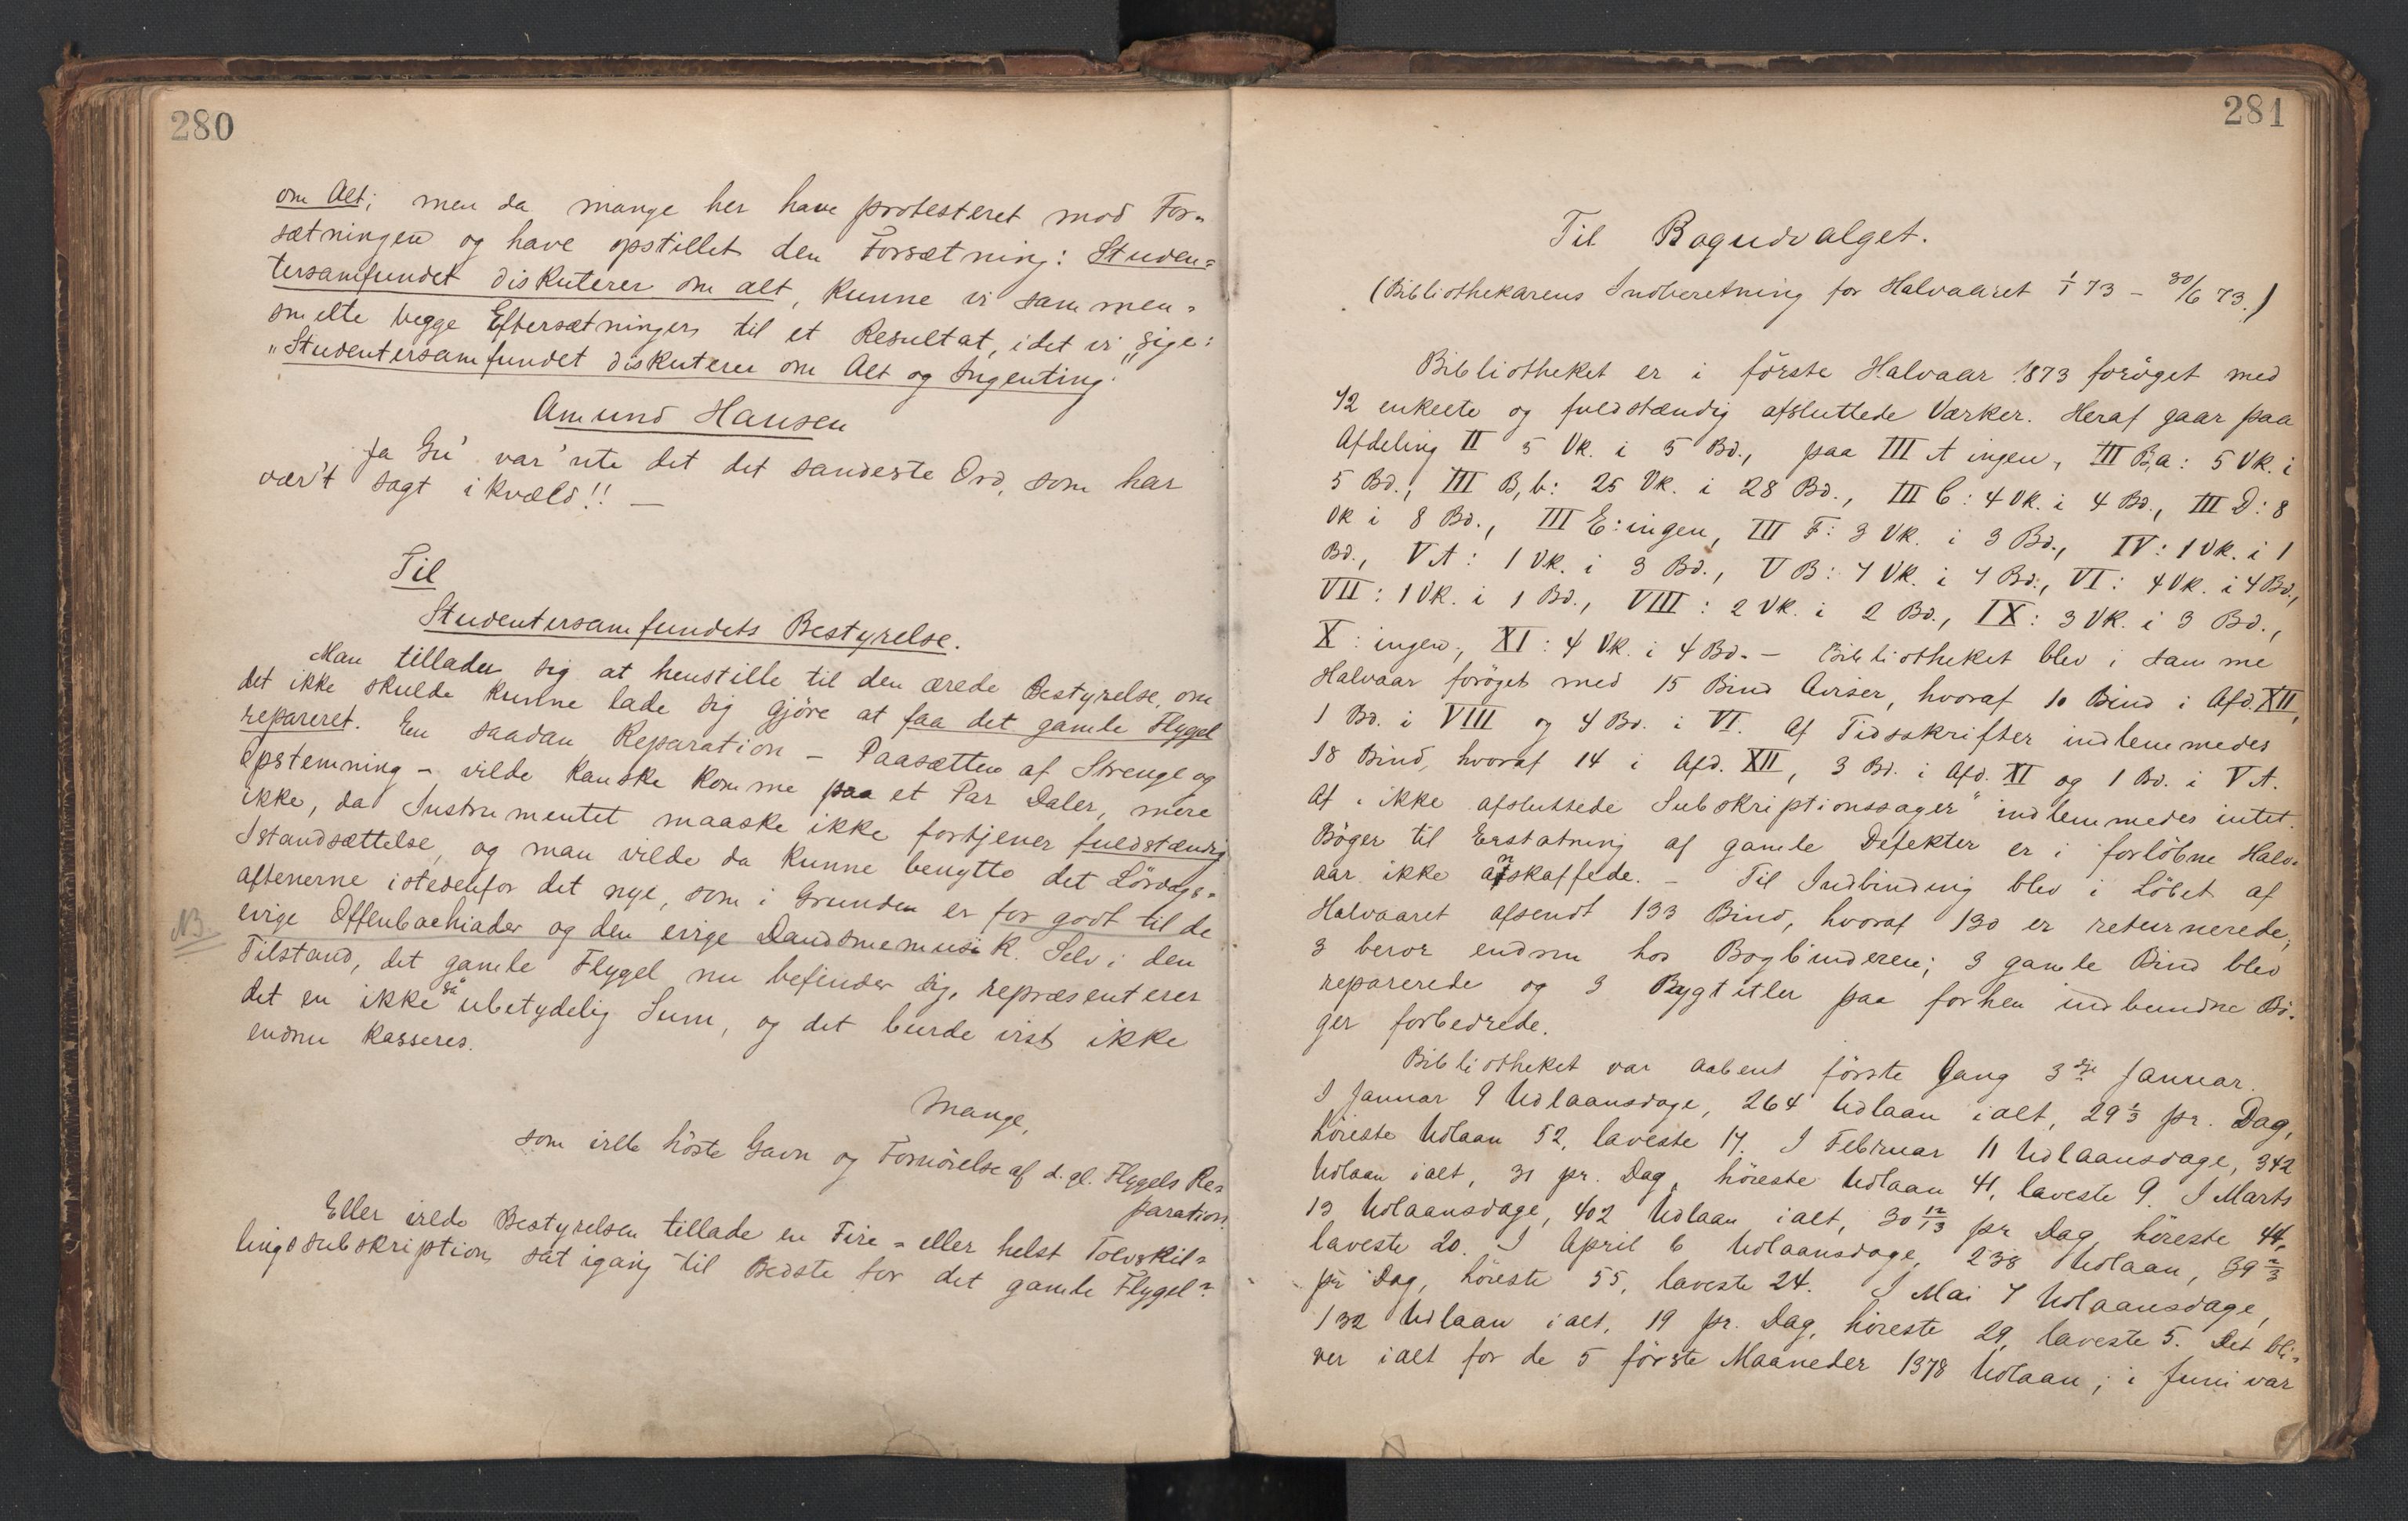 280
om Alt; men da mange her have protesteret mod For-
sætningen og have opstillet den Forsætning: Studen-
tersamfundet diskuterer om alt, kunne vi sammen-
smelte begge Eftersætninger til et Resultat, idet vi sige:
"Studentersamfundet diskuterer om Alt og Ingenting."
Amund Hansen
Ja Gu' var'nte det det sandeste Ord, som har
vær't sagt ikvæld!! —
Til
Studentersamfundets Bestyrelse.
Man tillader sig at henstille til den ærede Bestyrelse, om
det ikke skulde kunne lade sig gjöre at faa det gamle Flygel
repareret. En saadan Reparation — Paasætten af Strenge og
Opstemning — vilde kanske komme paa et Par Daler, mere
ikke, da Instrumentet maaske ikke fortjener fuldstændig
Istandsættelse, og man vilde da kunne benytte det Lördags-
aftenerne istedenfor det nye, som i Grunden er for godt til de
NB.
evige Offenbachiader og den evige Dandsemusik. Selv i den
Tilstand, det gamle Flygel nu befinder sig, repræsenterer
det en ikke så ubetydelig Sum, og det burde vist ikke
endnu kasseres.
Mange,
som vilde höste Gavn og Fornöielse af d. gl. Flygels Re-
paration.
Eller vilde Bestyrelsen tillade en Fire- eller helst Tolvskil-
lingssubskription sat igang til Bedste for det gamle Flygel?
281
Til Bogudvalget.
(Bibliothekarens Indberetning for Halvaaret 1/1 73 — 30/6 73.)
Bibliotheket er i förste Halvaar 1873 foröget med
72 enkelte og fuldstændig afsluttede Værker. Heraf gaar paa
Afdeling II 5 Vk. i 5 Bd., paa III A ingen, III B,a: 5 Vk. i
5 Bd., III B,b: 25 Vk. i 28 Bd., III C: 4 Vk. i 4 Bd., III D: 8
Vk i 8 Bd., III E: ingen, III F: 3 Vk. i 3 Bd., IV: 1 Vk. i 1
Bd., V A: 1 Vk. i 3 Bd., V B: 7 Vk. i 7 Bd., VI: 4 Vk. i 4 Bd.,
VII: 1 Vk. i 1 Bd., VIII: 2 Vk. i 2 Bd., IX: 3 Vk. i 3 Bd.,
X: ingen, XI: 4 Vk. i 4 Bd. — Bibliotheket blev i samme
Halvaar foröget med 15 Bind Aviser, hvoraf 10 Bind i Afd. XII,
1 Bd. i VIII og 4 Bd. i VI. Af Tidsskrifter indlemmedes
18 Bind, hvoraf 14 i Afd. XII, 3 Bd. i Afd. XI og 1 Bd. i V A.
Af "ikke afsluttede Subskriptionssager" indlemmedes intet.
Böger til Erstatning af gamle Defekter er i forlöbne Halv-
aar ikke anskaffede. — Til Indbinding blev i Löbet af
Halvaaret afsendt 133 Bind, hvoraf 130 er returnerede,
3 beror endnu hos Bogbinderen; 3 gamle Bind blev
reparerede og 3 Rygtitler paa forhen indbundne Bö-
ger forbedrede.
Bibliotheket var aabent förste Gang 3die Januar.
I Januar 9 Udlaansdage, 264 Udlaan ialt, 29 1/3 pr. Dag,
höieste Udlaan 52, laveste 17. I Februar 11 Udlaansdage, 342
Udlaan ialt, 31 pr. Dag, höieste Udlaan 41, laveste 9. I Marts
13 Udlaansdage, 402 Udlaan ialt, 30 12/13 pr Dag, höieste 44,
laveste 20. I April 6 Udlaansdage, 238 Udlaan, 39 2/3
pr Dag, höieste 55, laveste 24. I Mai 7 Udlaansdage,
132 Udlaan ialt, 19 pr. Dag, höieste 29, laveste 5. Det bli-
ver ialt for de 5 förste Maaneder 1378 Udlaan; i Juni var